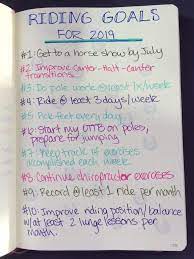 RIDING GOALS
FOR 2019
#1: Get to a horse show by July
#2: Improve canter-halt-canter
transitions
#3: Do pole work @least 1x/week
#4: Ride @ least 3 days/week
#5: Pick feet every day
#6: Start my OTTB on poles,
prepare for jumping
#7: Keep track of exercises
accomplished each week
#8: Continue chiropractor exercises
#9: Record @least 1 ride per month
#10: Improve riding position/balance
w/at least 2 lunge lessons per
month.